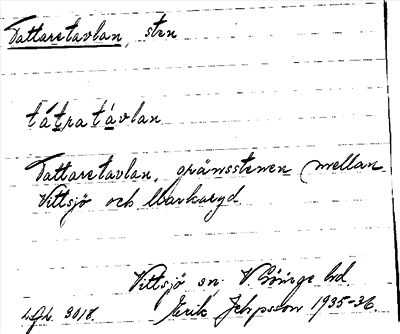 Tattaretavlan, sten
tátratávlan
Tattaretavlan, gränsstenen mellan
Vittsjö och Markaryd.
Vittsjö sn, V. Göinge hd.
Erik Jeppsson 1935-36.
3018.